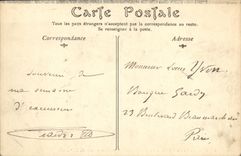 Carte Postale
Tous les pays étrangers n'acceptent pas la correspondance au recto.
Se renseigner à la poste.
Correspondance
Adresse
Souvenir de
ma semaine
d'excursion
Monsieur Louis Yvon
Banque
23 Boulevard Beaumarchais
Paris